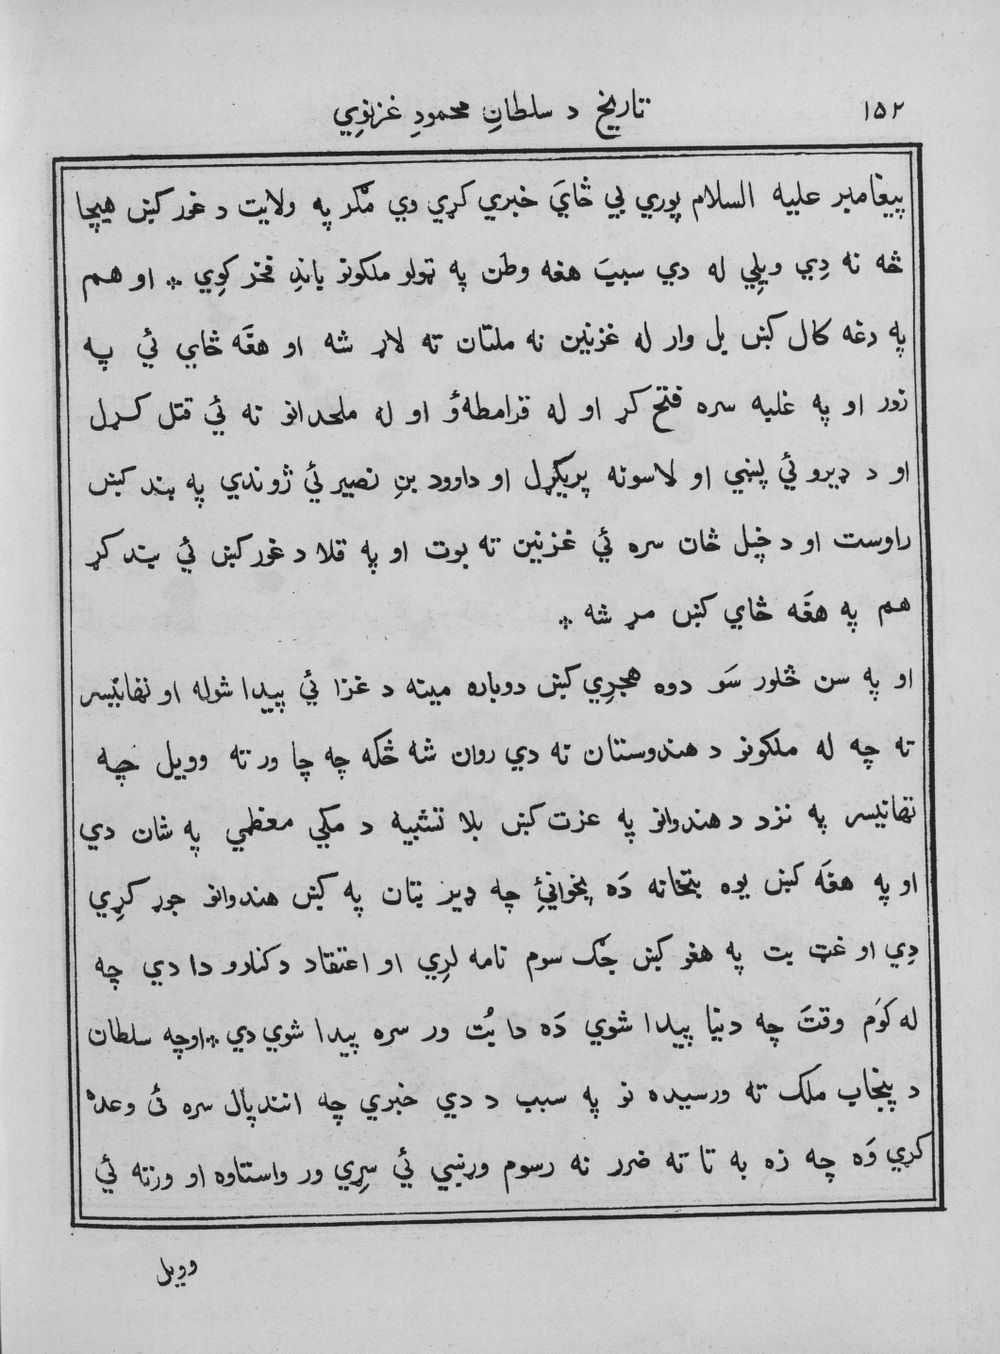 ١٥٢
تاریخ د سلطانِ محمودِ غزنوِي
پیغامبر علیه السلام پوري بي ځايَ خبري کړي وي مګر په ولایت د غور کښ هیچا
څه نه دِي ویلِي له دي سببَ هغه وطن په ټولو ملکونو باندِ فخر کوِي ⁘ او هم
په دغه کال کښ بل وار له غزنین نه ملتان ته لاړ شه او هغَه ځاي ئي په
زور او په غلبه سره فتح کړ او له قرامطهؤ او له ملحدانو نه ئي قتل کړل
او د ډیرو ئي پښي او لاسونه پریکړل او داوود بنِ نصیر ئي ژوندي په بند کښ
راوست او د خپل ځان سره ئي غزنین ته بوت او په قلا د غور کښ ئي بند کړ
هم په هغَه ځاي کښ مړ شه ⁘
او په سن څلور سَو دوه هجرِي کښ دوباره مینه د غزا ئي پیدا شوله او تهانیسر
ته چه له ملکونو د هندوستان نه دي روان شه ځکه چه چا ورته وویل چه
تهانیسر په نزد د هندوانو په عزت کښ بلا تشبیه د مکي معظمي په شان دي
او په هغَه کښ یوه بتخانه دَه پخوانئِ چه ډیر بتان په کښ هندوانو جوړ کړِي
دِي او غټ بت په هغو کښ جګ سوم نامه لرِي او اعتقاد د کفارو دا دي چه
له کوَم وقتَ چه دنیا پیدا شوي دَه دا بُت ور سره پیدا شوي دي ⁘ اوچه سلطان
د پنجاب ملک ته ورسیده نو په سبب د دي خبري چه انندپال سره ئی وعده
کړي وَه چه زه به تا ته ضرر نه رسوم وړنبي ئي سړِي ور واستاوه او ورته ئي
وویل